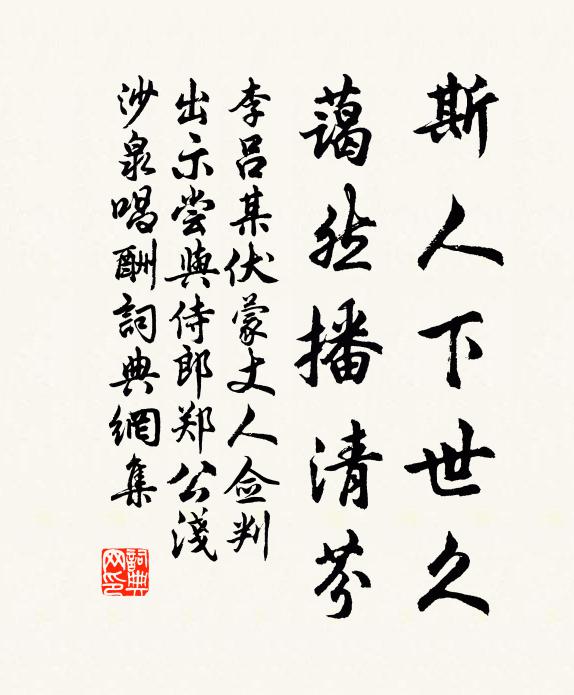 斯人下世久
藹然播清芬
李呂某伏蒙丈人佥判
出示嘗與侍郎郑公淺
沙泉唱酬詞典網集
詞典網印